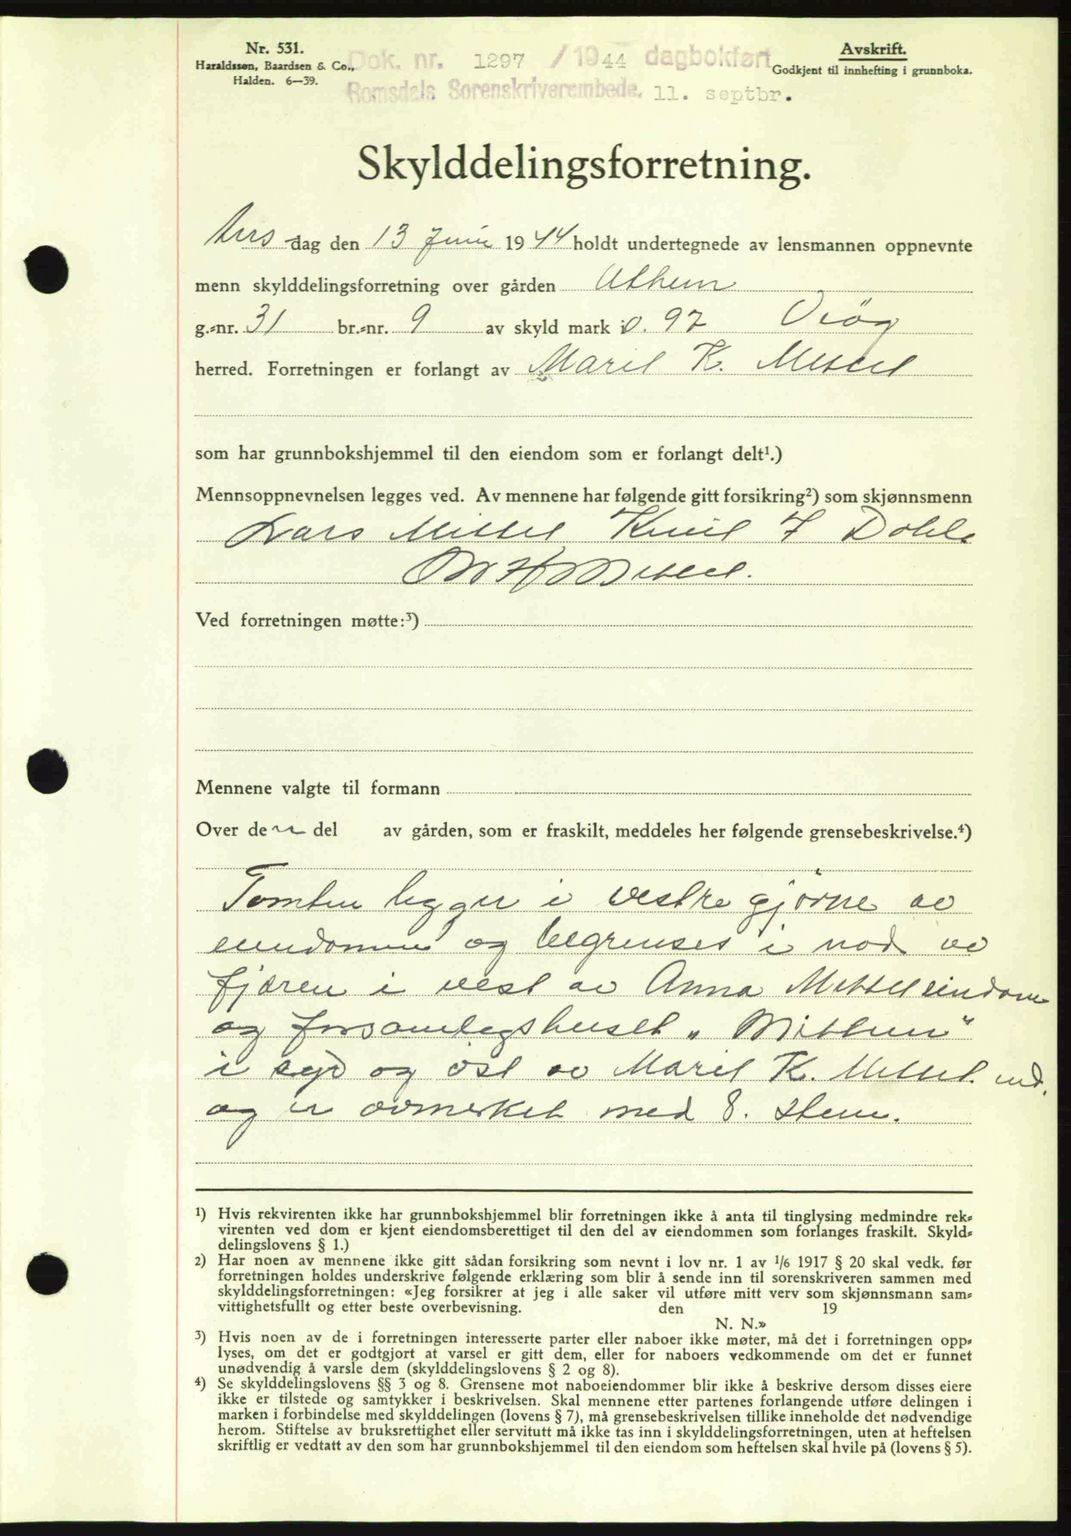 Nr. 531.
Haraldssøn, Baardsen & Co.,
Halden. 6—39.
Dok. nr. 1297 / 1944 dagbokført
Romsdals Sorenskriverembede, 11. septbr.
Avskrift.
Godkjent til innhefting i grunnboka.
Skylddelingsforretning.
Tirsdag den 13 Juni 1944 holdt undertegnede av lensmannen oppnevnte
menn skylddelingsforretning over gården Utheim
g.-nr. 31 br.-nr. 9 av skyld mark 0. 97 Veøy
herred. Forretningen er forlangt av Marit K. Mittet
som har grunnbokshjemmel til den eiendom som er forlangt delt¹.)
Mennsoppnevnelsen legges ved. Av mennene har følgende gitt forsikring²) som skjønnsmenn
Lars Mittet Knut Dahle
Mittet.
Ved forretningen møtte:³)
Mennene valgte til formann
Over den del av gården, som er fraskilt, meddeles her følgende grensebeskrivelse.⁴)
Tomten ligger i vestre gjörne av
eiendommen og begrenses i nord av
fjæren i vest av Anna Mittet eiendom
og forsamlingshuset „Mittun"
i syd og öst av Marit K. Mittet. eiend.
og er avmerket med 8. stene.
¹) Hvis rekvirenten ikke har grunnbokshjemmel blir forretningen ikke å anta til tinglysing medmindre rek-
virenten ved dom er kjent eiendomsberettiget til den del av eiendommen som forlanges fraskilt. Skyld-
delingslovens § 1.)
²) Har noen av mennene ikke gitt sådan forsikring som nevnt i lov nr. 1 av ¹/₆ 1917 § 20 skal vedk. før
forretningen holdes underskrive følgende erklæring som blir å sende inn til sorenskriveren sammen med
skylddelingsforretningen: «Jeg forsikrer at jeg i alle saker vil utføre mitt verv som skjønnsmann sam-
vittighetsfullt og etter beste overbevisning. den 19
N. N.»
³) Hvis noen av de i forretningen interesserte parter eller naboer ikke møter, må det i forretningen opp-
lyses, om det er godtgjort at varsel er gitt dem, eller for naboers vedkommende om det er funnet
unødvendig å varsle dem (skylddelingslovens § 2 og 8).
⁴) Se skylddelingslovens §§ 3 og 8. Grensene mot naboeiendommer blir ikke å beskrive dersom disses eiere
ikke er tilstede og samtykker i beskrivelsen. Skal mennene etter partenes forlangende utføre delingen i
marken i forbindelse med skylddelingen (lovens § 7), må grensebeskrivelsen tillike inneholde det nødvendige
herom. Stiftelse av bruksrettighet eller servitutt må ikke tas inn i skylddelingsforretningen, uten at heftelsen
skriftlig er vedtatt av den som har grunnbokshjemmel til den eiendom som heftelsen skal hvile på (lovens § 5).